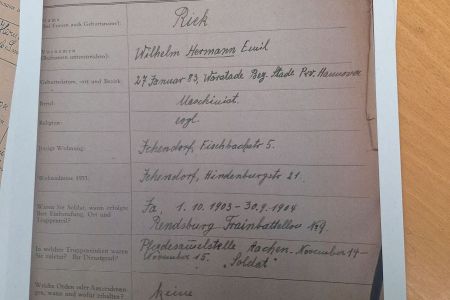 Name
(bei Frauen auch Geburtsname):
Rick
Vornamen
(Rufnamen unterstreichen):
Wilhelm Hermann Emil
Geburtsdatum, -ort und Bezirk:
27. Januar 83, Warstade Bez. Stade Prv. Hannover
Beruf:
Maschinist.
Religion:
evgl.
Jetzige Wohnung:
Ichendorf, Fischbachstr 5.
Ichendorf, Hindenburgstr 21.
Waren Sie Soldat, wann erfolgte
Ihre Einberufung, Ort und
Truppenteil?
Ja, 1.10.1903 - 30.9.1904
Rendsburg Trainbattellon No 9.
In welcher Truppeneinheit waren
Sie zuletzt? Ihr Dienstgrad?
Aachen - November 14 -
November 15. „Soldat"
Welche Orden oder Auszeichnungen
Keine